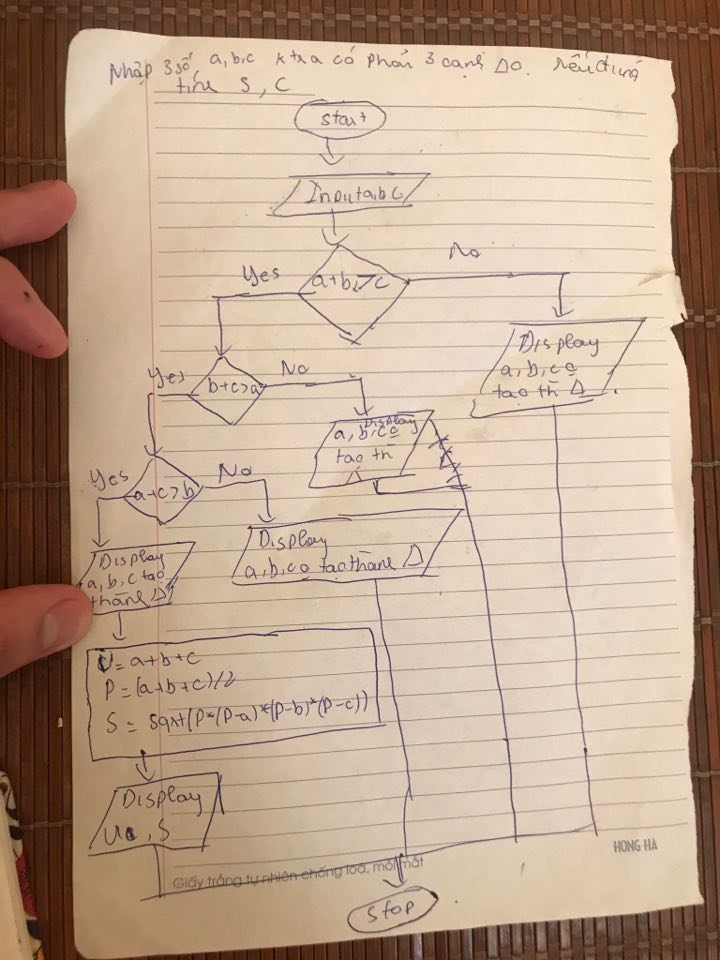 Nhập 3 số a,b,c ktra có phải 3 cạnh Δ o. nếu đúng
tính S, C
start
Input a,b,c
Yes
a+b>c
No
Display
a, b, c o
tạo th Δ
Yes
b+c>a
No
Display
a, b, c o
tạo th
Δ
Yes
a+c>b
No
Display
a, b, c tạo
thành Δ
Display
a, b, c o tạo thành Δ
U = a+b+c
P = (a+b+c)/2
S = sqrt(P*(P-a)*(P-b)*(P-c))
Display
U, S
Giấy trắng tự nhiên chống lóa, mỏi mắt
HONG HA
stop